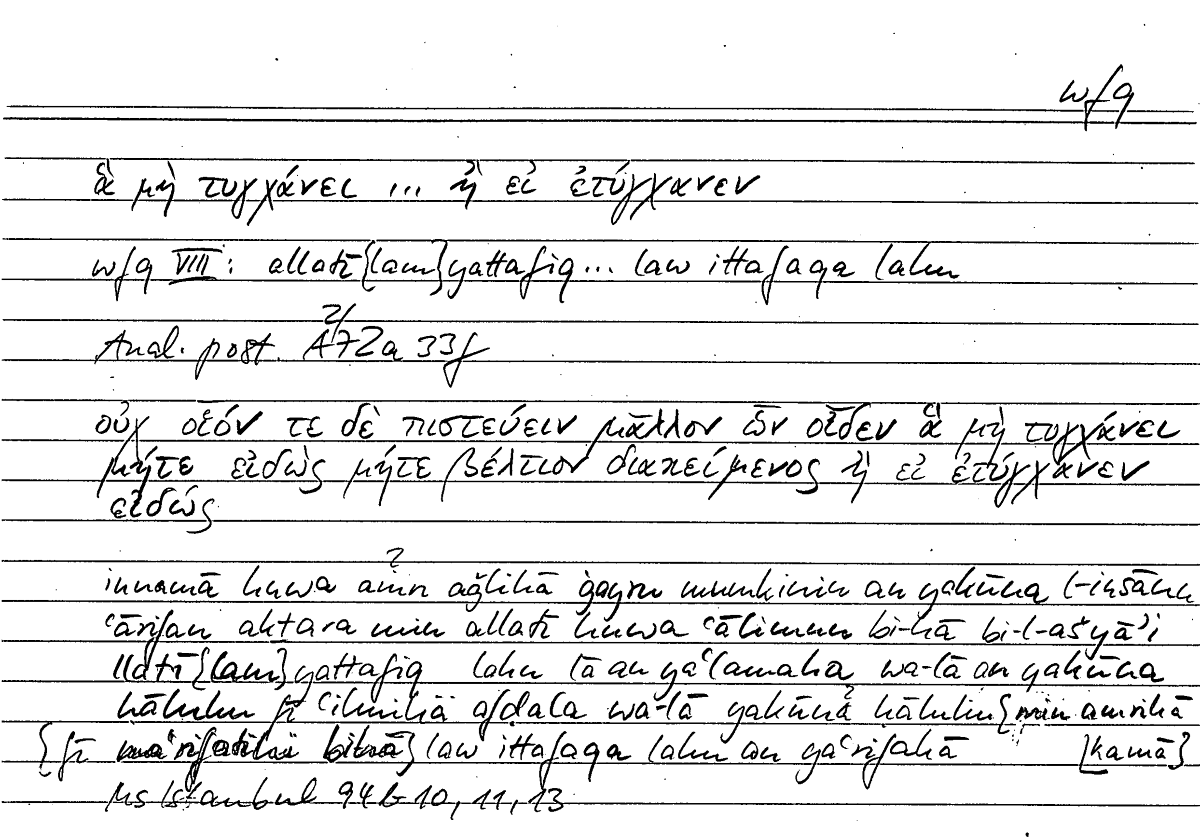 wfq
ἃ μὴ τυγχάνει ... ἢ εἰ ἐτύγχανεν
wfq VIII: allatī {lam} yattafiq ... law ittafaqa lahu
2/
Anal. post. A72a 33f
οὐχ οἷόν τε δὲ πιστεύειν μᾶλλον ὧν οἶδεν ἃ μὴ τυγχάνει
μήτε εἰδὼς μήτε βέλτιον διακείμενος ἢ εἰ ἐτύγχανεν
εἰδώς
?
innamā huwa min aǧlihā ġayru mumkinin an yakūna l-insānu
ʿārifan akṯara min allatī huwa ʿālimun bi-hā bi-l-ašyāʾi
llatī {lam} yattafiq lahu lā an yaʿlamaha wa-lā an yakūna
ḥāluhu fī ʿilmihā afḍala wa-lā yakūna ḥāluhu {min amrihā
{fī maʿrifatihī bihā} law ittafaqa lahu an yaʿrifahā [kamā}
Ms Istanbul 94b 10, 11, 13